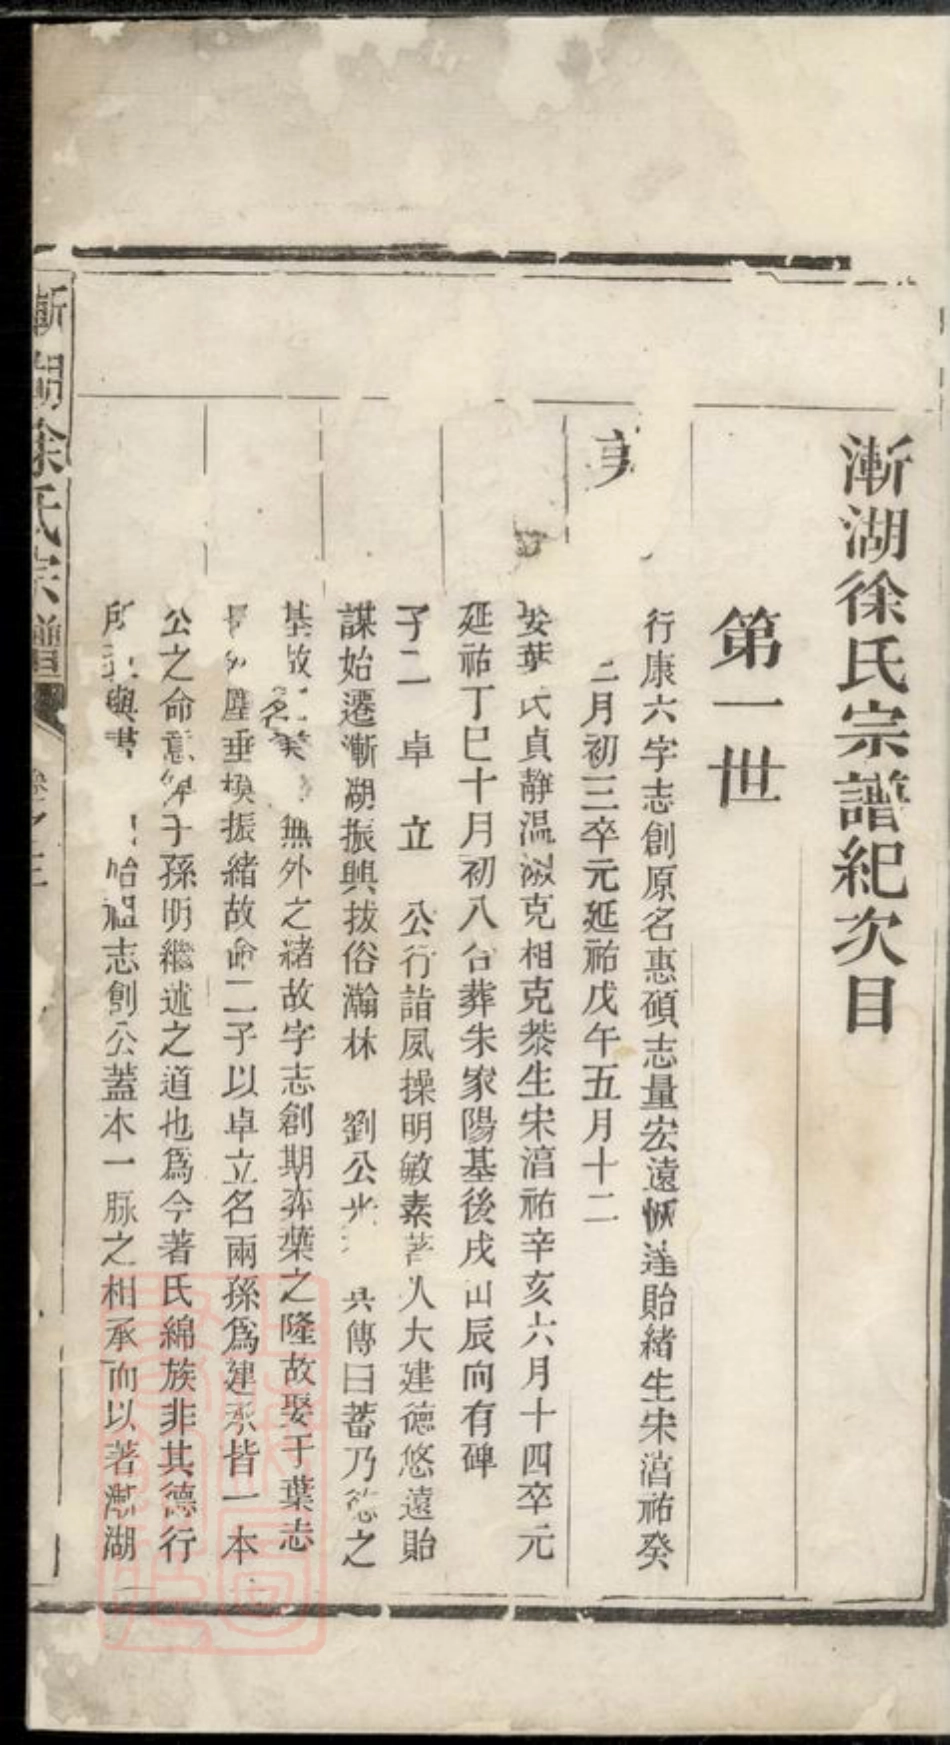 漸湖徐氏宗譜紀次目
第一世
行康六字志創原名惠碩志量宏遠恢達貽緒生宋淯祐癸
二月初三卒元延祐戊午五月十二
安葉氏貞靜溫淑克相克恭生宋淯祐辛亥六月十四卒元
延祐丁巳十月初八合葬朱家陽基後戌山辰向有碑
子二 卓 立 公行詣風操明敏素著人大建德悠遠貽
謀始遷漸湖振興拔俗瀚林 劉公 共傳曰蓄乃德之
基故 名 無外之緒故字志創期弈葉之隆故娶于葉志
塵垂模振緒故命二子以卓立名兩孫爲建承皆一本
公之命意 子孫明繼述之道也爲今著氏綿族非其德行
所 與書 始祖志創公蓋本一脉之相承而以著漸湖
漸湖徐氏宗譜